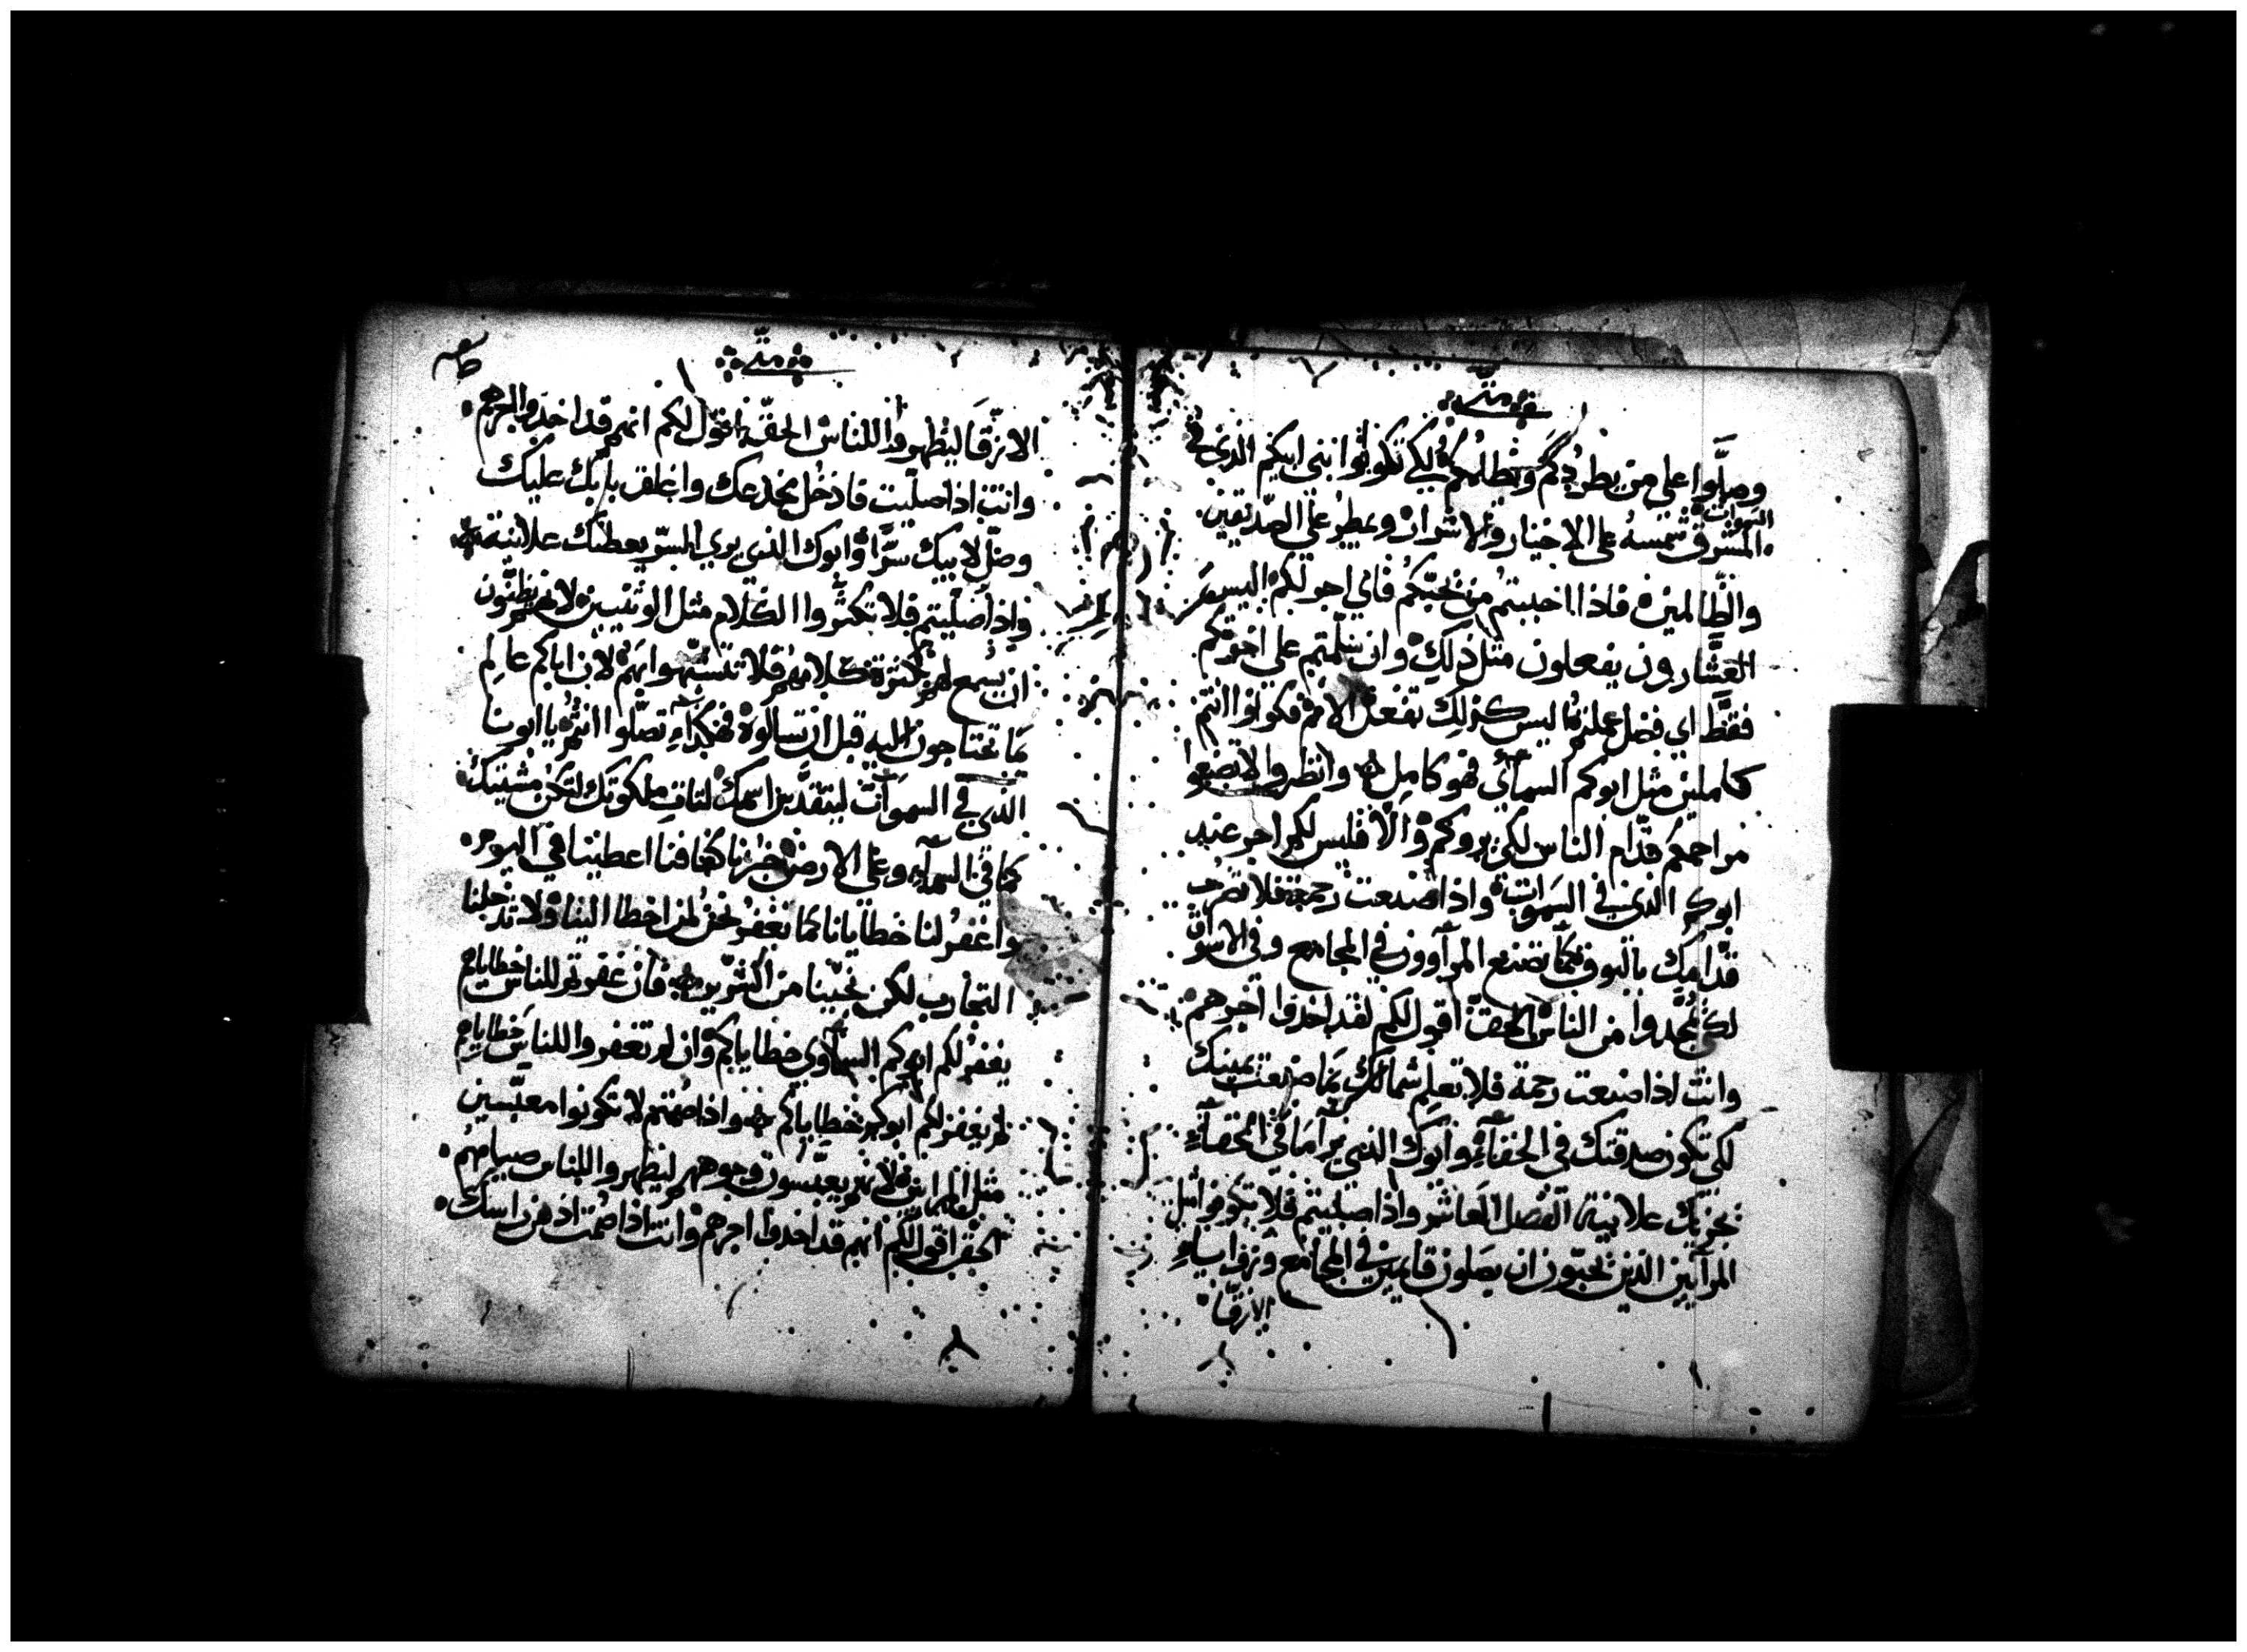 متى
وصلّوا على من يطردكم ويظلمكم لكي تكونوا بني ابيكم الذي في
السموات
المشرق شمسه على الاخيار والاشرار ويمطر على الصدّيقين
والظالمين فاذا احببتم من يحبّكم فاي اجر لكم اليس
العشّارون يفعلون مثل ذلك وان سلّمتم على اخوتكم
فقط اي فضل عملتم اليس كذلك تفعل الامم فكونوا انتم
كاملين مثل ابوكم السمائي فهو كامل وانظروا لا تصنعوا
مراحمكم قدّام الناس لكي يروكم والّا فليس لكم اجر عند
ابوكم الذي في السموات واذا صنعت رحمة فلا تضرب
قدامك بالبوق كما تصنع المرآوون في المجامع وفي الاسواق
لكي يُمجّدوا من الناس الحق اقول لكم لقد اخذوا اجرهم
وانت اذا صنعت رحمة فلا تعلم شمالك بما صنعت يمينك
لكي تكون صدقتك في الخفآء وابوك الذي يرا ما في الخفآءِ
يجزيك علانية الفصل العاشر واذا صليتم فلا تكونوا مثل
المرآيين الذين يحبّون ان يصلون قايمين في المجامع وزوايا
الازقّا
متى
الازقّا ليظهروا للناس الحق اقول لكم انهم قد اخذوا اجرهم
وانت اذا صلّيت فادخل مخدعك واغلق بابك عليك
وصلّ لابيك سرًّا وابوك الذي يرى السرّ يعطيك علانية
واذا صلّيتم فلا تكثروا الكلام مثل الوثنيين لانهم يظنّون
ان يسمع لهم بكثرة كلامهم فلا تتشبّهوا بهم لان اباكم عالم
بما تحتاجون اليه قبل ان تسالوه فهكذا تصلّوا انتم يا ابونا
الذي في السموات ليتقدّس اسمك لتات ملكوتك لتكن مشيتك
كما في السمآء وعلى الارض خبزنا كفافنا اعطينا في اليوم
واغفر لنا خطايانا كما نغفر نحن لمن اخطا الينا ولا تدخلنا
التجارب لكن نجّينا من الشرّير فان غفرتم للناس خطاياهم
يغفر لكم ابوكم السماوي خطاياكم وان لم تغفروا للناس خطاياهم
لم يغفر لكم ابوكم خطاياكم واذا صمتم لا تكونوا معبّسين
مثل المرايين لانهم يعبّسون وجوههم ليظهروا للناس صيامهم
الحق اقول لكم انهم قد اخذوا اجرهم وانت اذا صمت ادهن راسك